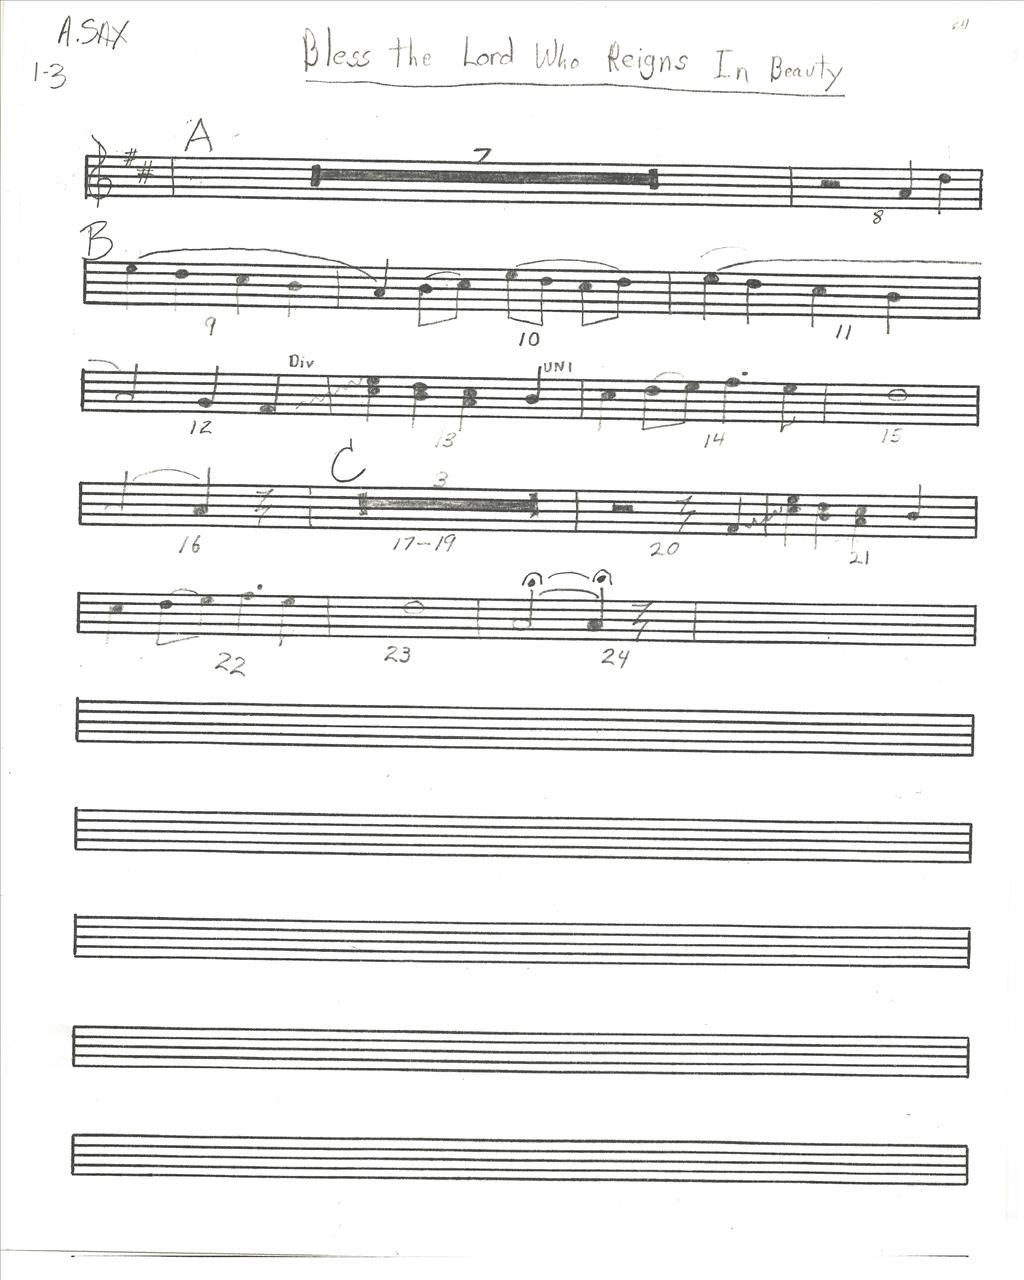 A.SAX
1-3
Bless the Lord Who Reigns In Beauty
A
7
8
B
9 10 11
Div UNI
12 13 14 15
C
3
16 17-19 20 21
22 23 24